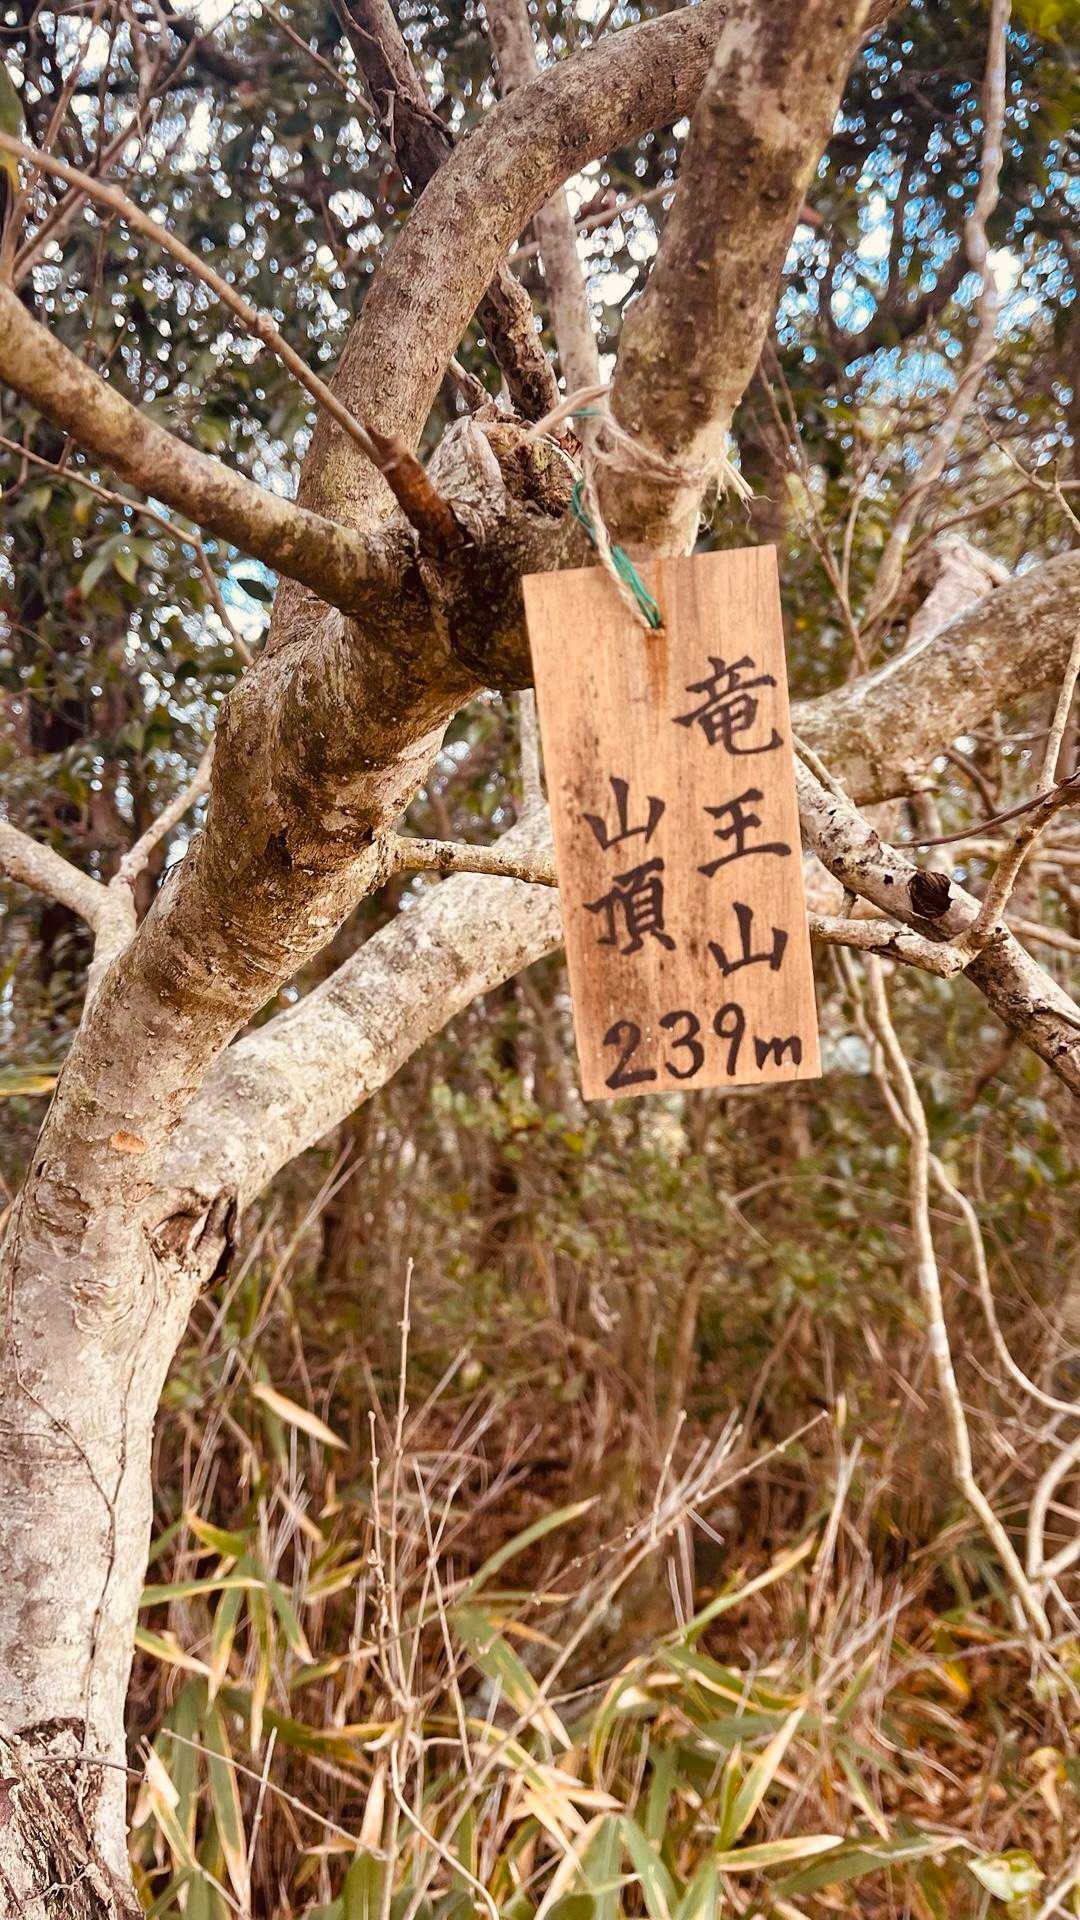 竜王山
山頂
239m